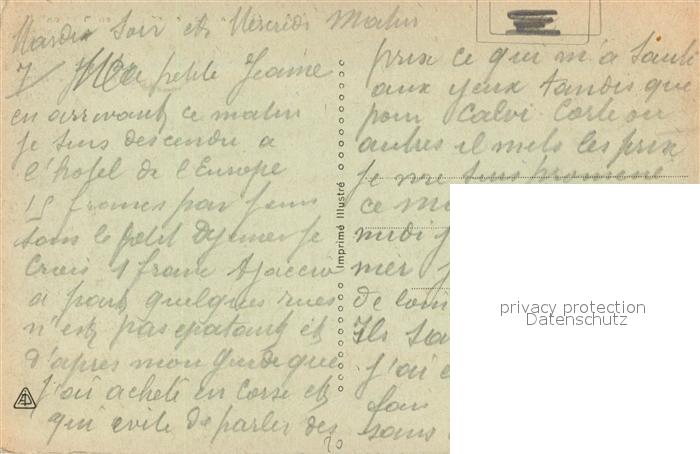 Mardi Soir et Mercredi Matin
7/ Ma petite Jeanne
en arrivant ce matin
je suis descendu a
l'hotel de l'Europe
15 francs par jour
sans le petit Dejeuner je
Crois 1 franc Ajaccio
a part quelques rues
n'est pas epatant et
d'apres mon Guide que
j'ai acheté en Corse et
qui evite de parler des
20
Imprimé Illustré
prix ce qui m'a Sauté
aux yeux tandis que
pour Calvi Corte ou
autres il mets les prix
je me suis promené
ce
midi
mer
de loin
Ils
j'ai
sans
privacy protection
Datenschutz